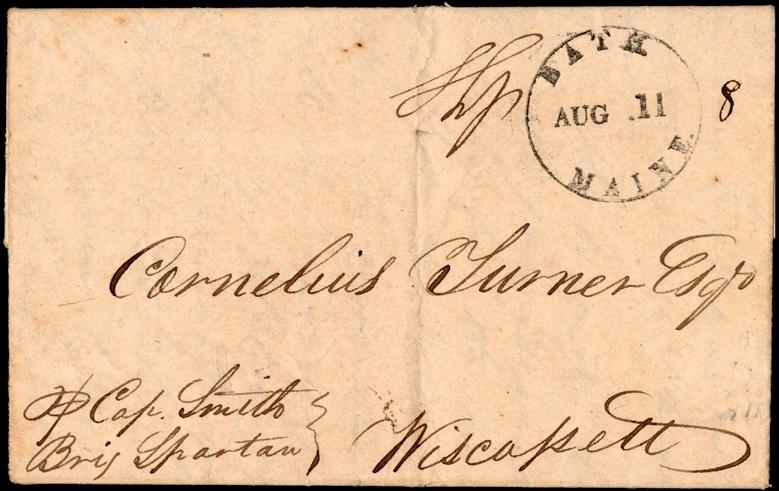 Shp
BATH
AUG .11
MAINE.
8
Cornelius Turner Esqr
⅌ Cap. Smith
Brig Spartan
Wiscassett